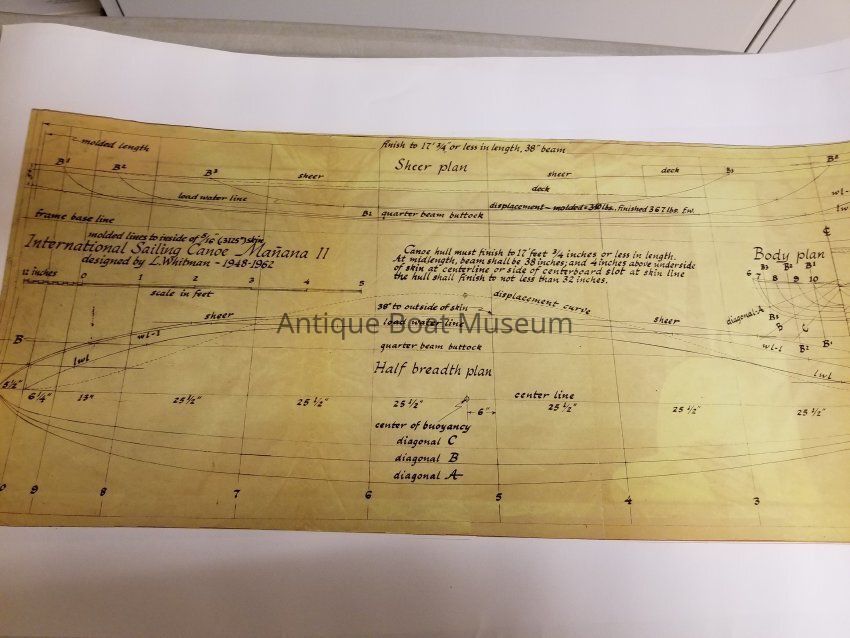 molded length
finish to 17' 3/4" or less in length, 38" beam
Sheer plan
B¹ B² B³ sheer sheer deck B₃ B²
deck
load water line
displacement - molded = 350 lbs. Finished 367 lbs. F.w.
wl-
lw
B₂ quarter beam buttock
frame base line
molded lines to inside of 5/16" (.3125") skin
International Sailing Canoe Mañana II
designed by L. Whitman - 1948-1962
12 inches 0 1 2 3 4 5
scale in feet
Canoe hull must finish to 17 feet 3/4 inches or less in length.
At midlength, beam shall be 38 inches; and 4 inches above underside
of skin at centerline or side of centerboard slot at skin line
the hull shall finish to not less than 32 inches.
Body plan
B₃ B² B¹
6 7 8 9 10
diagonal-A
B₃
B C
wl-1 B₂ B¹
displacement curve
38" to outside of skin
load water line
sheer
sheer
wl-1
B
quarter beam buttock
lwl
lwl
Half breadth plan
5 1/2" 6 1/4" 13" 25 1/2" 25 1/2" 25 1/2" 6" 25 1/2" 25 1/2" 25 1/2"
center line
center of buoyancy
diagonal C
diagonal B
diagonal A
0 9 8 7 6 5 4 3
Antique Boat Museum